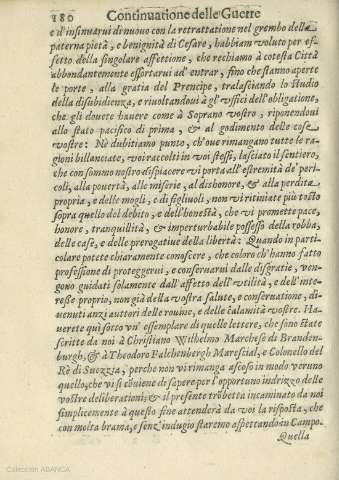 180 Continuatione delle Guerre
e d'insinuarui di nuouo con la retrattatione nel grembo della
paterna pietà, e benignità di Cesare, habbiam voluto per ef-
fetto della singolare affettione, che rechiamo à cotesta Città
abbondantemente essortarui ad' entrar, fino che stanno aperte
le porte, alla gratia del Prencipe, tralasciando lo studio
della disubidienza, e riuoltandoui à gl' vffici dell'obligatione,
che gli douete hauere come à Soprano vostro, riponendoui
allo stato pacifico di prima, & al godimento delle cose
vostre: Nè dubitiamo punto, ch'oue rimangano tutte le ra-
gioni billanciate, voi raccolti in voi stessi, lasciato il sentiero,
che con sommo nostro dispiacere vi porta all'estremità de' peri-
coli, alla pouertà, alle miserie, al dishonore, & alla perdita
propria, e delle mogli, e di figliuoli, non vi ritiniate più tosto
sopra quello del debito, e dell'honestà, che vi promette pace,
honore, tranquilità, & imperturbabile possesso della robba,
delle case, e delle prerogatiue della libertà: Quando in parti-
colare potete chiaramente conoscere, che coloro ch'hanno fatto
professione di proteggerui, e conseruarui dalle disgratie, ven-
gono guidati solamente dall'affetto dell'vtilità, e dell'inte-
resse proprio, non già della vostra salute, e conseruatione, di-
uenuti anzi auttori delle rouine, e delle calamità vostre. Ha-
uerete quì sotto vn' essemplare di quelle lettere, che sono state
scritte da noi à Christiano Wilhelmo Marchese di Branden-
burgh, & à Theodoro Falchenbergh Marescial, e Colonello del
Rè di Suezzia, perche non vi rimanga ascoso in modo veruno
quello, che vi si cōuiene di sapere per l'opportuno indrizzo delle
vostre deliberationi; & il presente trōbetta incaminato da noi
simplicemente à questo fine attenderà da voi la risposta, che
con molta brama, e senz'indugio staremo aspettando in Campo.
Quella
Colección ABANCA